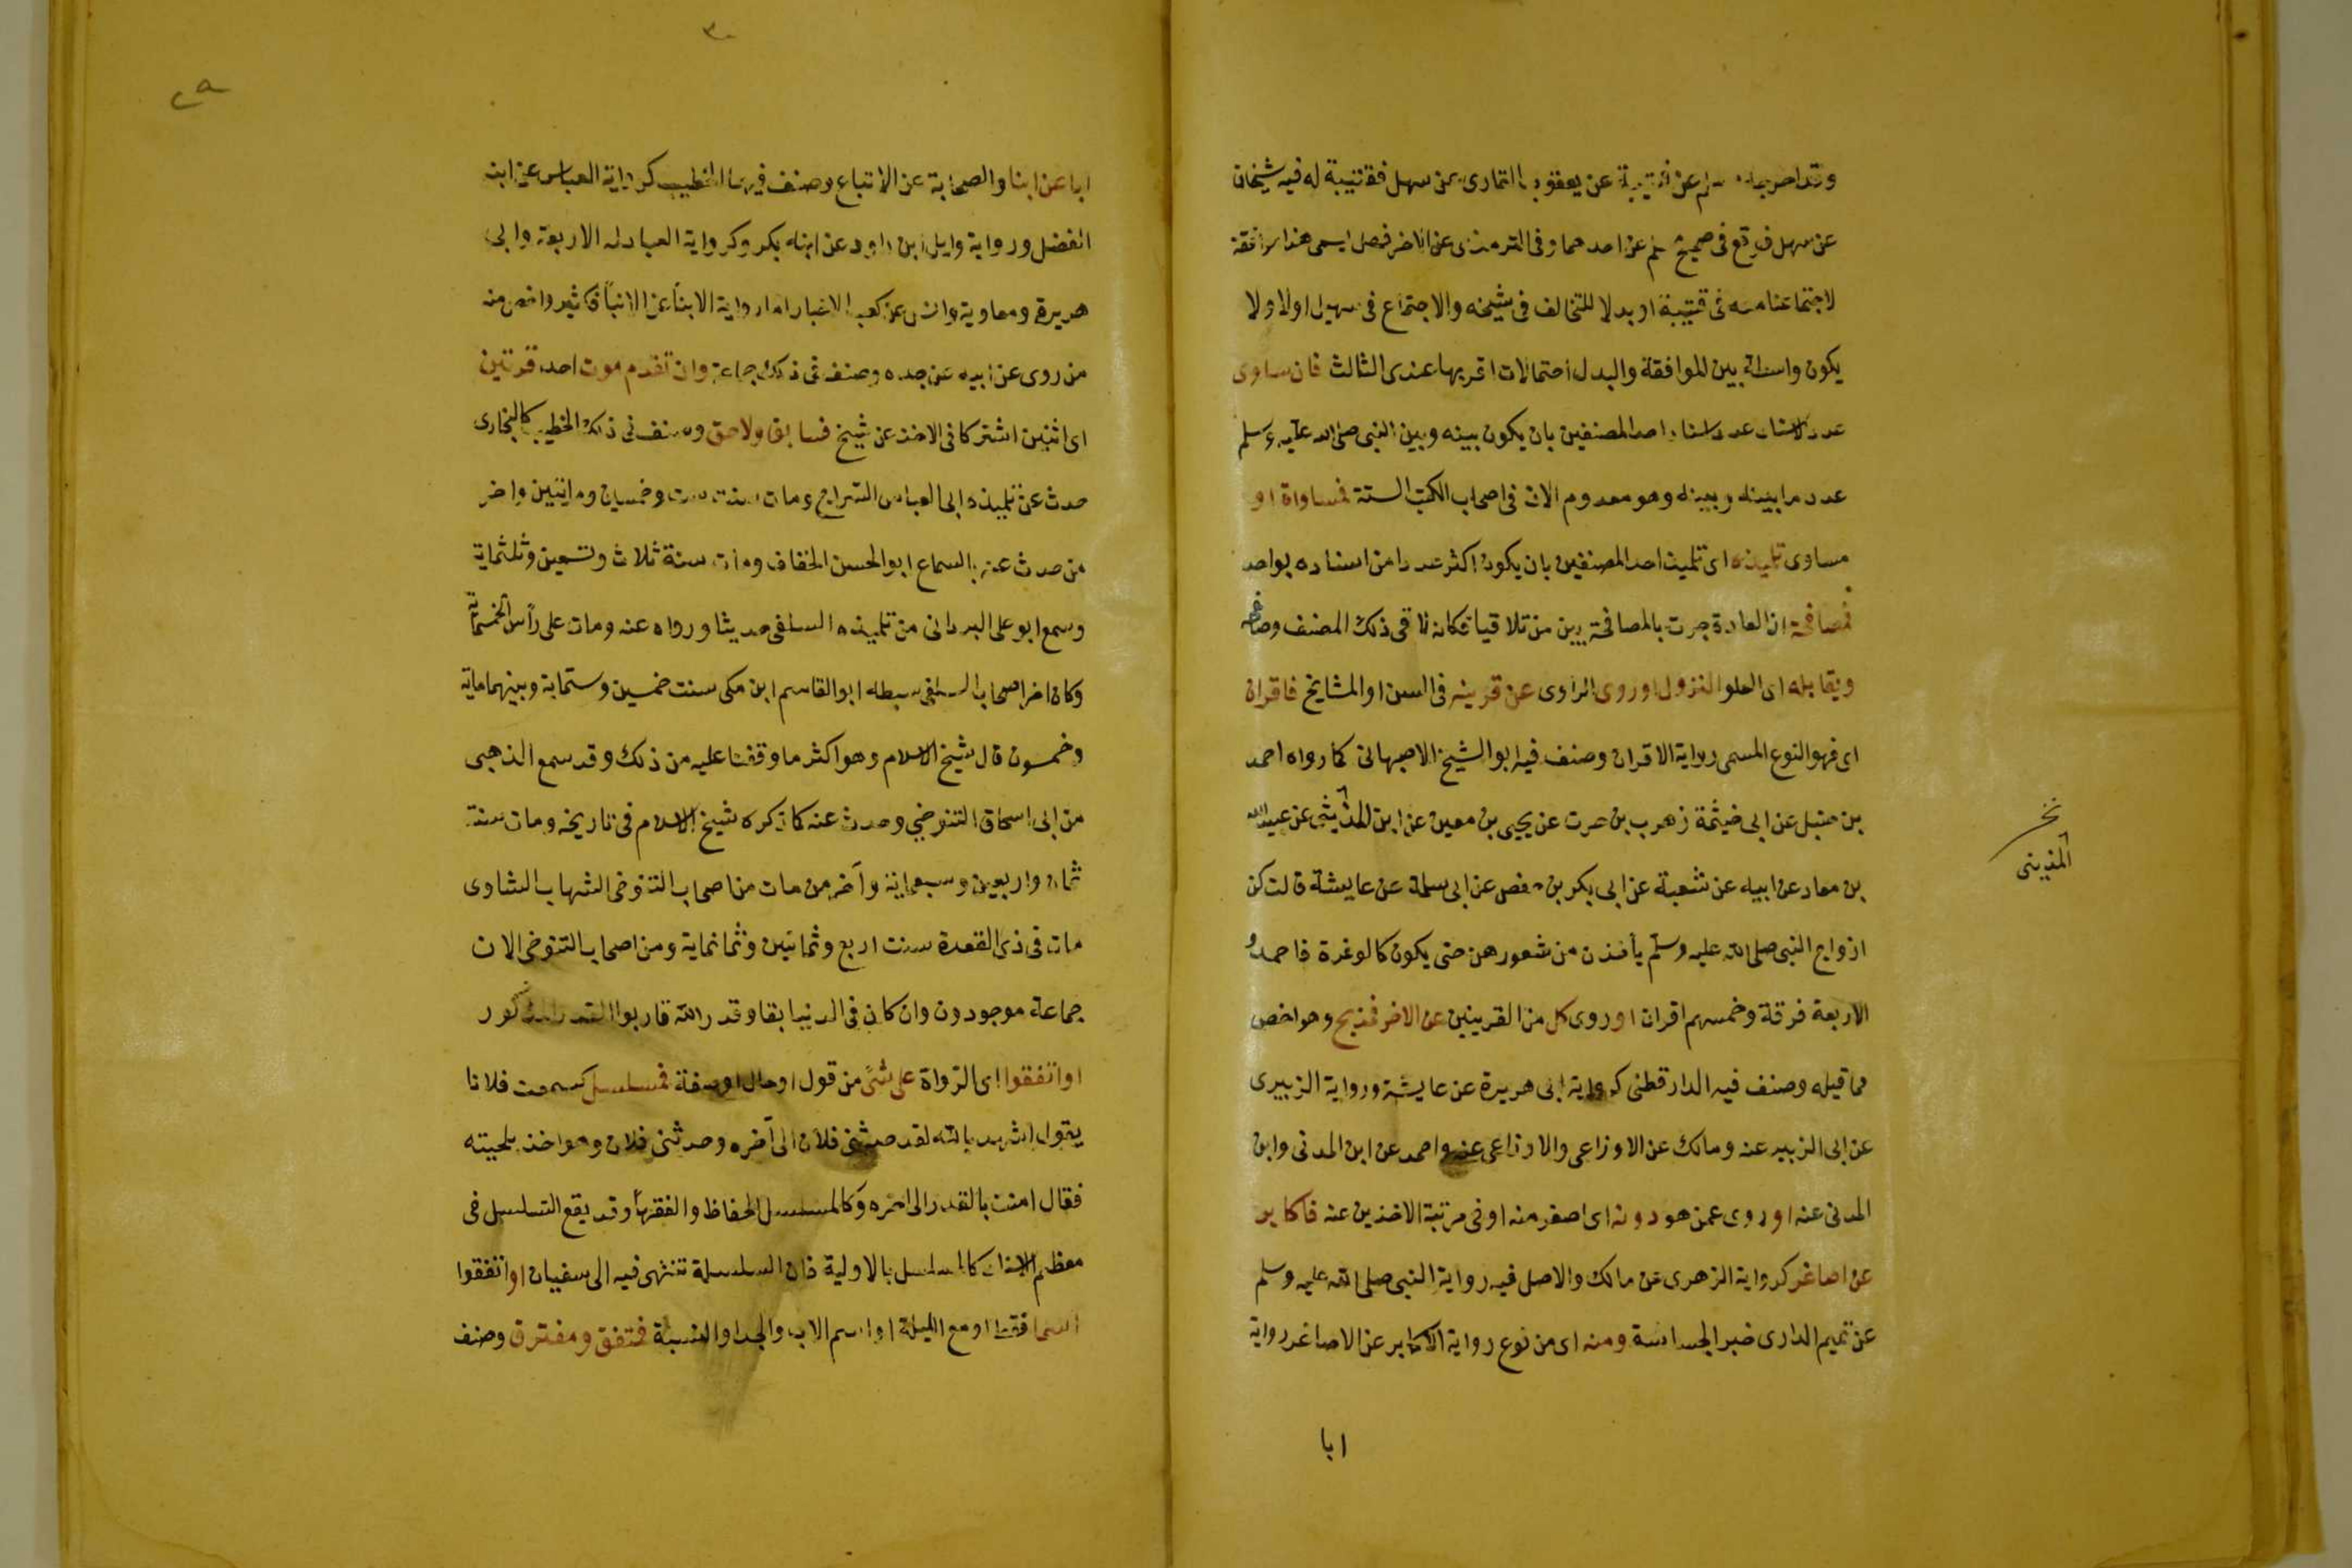 وقد اخرجه مسلم عن قتيبة عن يعقوب القارى عن سهل فقتيبة له فيه شيخان
عن سهل فوقع فى صحيح مسلم عن احدهما وفى الترمذى عن الاخر فهل يسمى هذا موافقة
لاجتماعنا معه فى قتيبة او بدلا للتخالف فى شيخه والاجتماع فى سهيل اولا ولا
يكون واسطة بين الموافقة والبدل احتمالات اقربها عندى الثالث فان ساوى
عدد الاسناد عدد اسناد احد المصنفين بان يكون بينه وبين النبى صلى الله عليه وسلم
عدد ما بينه وبينه وهو معدوم الان فى اصحاب الكتب الستة فمساواة او
مساوى تلميذه اى تلميذ احد المصنفين بان يكون اكثر عددا من اسناده بواحد
فمصافحة ان العادة جرت بالمصافحة بين من تلاقيا فكانه لاقى ذلك المصنف وصافحه
ويقابله اى العلو النزول او روى الراوى عن قرينه فى السن او المشايخ فاقران
اى فهو النوع المسمى رواية الاقران وصنف فيه ابو الشيخ الاصبهانى كما رواه احمد
بن حنبل عن ابى خيثمة زهرب بن حرث عن يحيى بن معين عن ابن المديثى عن عبيد الله
بن معاد عن ابيه عن شعبة عن ابى بكر بن حفص عن ابى سلمة عن عايشة قالت كن
ازواج النبى صلى الله عليه وسلم يأخذن من شعورهن حتى يكون كالوغرة فاحمد و
الاربعة فرقة وخمسهم اقران او روى كل من القرينين عن الاخر فمذبح وهو اخص
مما قبله وصنف فيه الدارقطنى كرواية ابى هريرة عن عايشة ورواية الزبيرى
عن ابى الزبير عنه ومالك عن الاوزاعى والاوزاعى عنه واحمد عن ابن المدنى وابن
المدنى عنه او روى عمن هو دونه اى اصغر منه او فى مرتبة الاخذين عنه فاكابر
عن اصاغر كرواية الزهرى عن مالك والاصل فيه رواية النبى صلى الله عليه وسلم
عن تميم الدارى خبر الجساسة ومنه اى من نوع رواية الاكابر عن الاصاغر رواية
ابا
نخ
المدينى
٣٠
٢٩
ابا عن ابنا والصحابة عن الاتباع وصنف فيهما الخطيب كرواية العباس عن ابنه
الفضل ورواية وايل ابن داود عن ابنه بكر وكرواية العبادلة الاربعة وابى
هريرة ومعاوية وانس عن كعب الاخبار اما رواية الابنا عن الابا فكثير واخص منه
من روى عن ابيه عن جده وصنف فى ذلك جماعة وان تقدم موت احد قرنين
اى اثنين اشتركا فى الاخذ عن شيخ فسابق ولاحق وصنف فى ذلك الخطيب كالبخارى
حدث عن تلميذه ابى العباس السراج ومات سنة ست وخمسين وماتين واخر
من حدث عنه بالسماع ابو الحسن الخفاف ومات سنة ثلاث وتسعين وثلثماية
وسمع ابو على البردانى من تلميذه السلفى حديثا ورواه عنه ومات على رأس الخمسماية
وكان اخر اصحاب السلفى سبطه ابو القاسم ابن مكى سنت خمسين وستماية وبينهما ماية
وخمسون قال شيخ الاسلام وهو اكثر ما وقفنا عليه من ذلك وقد سمع الذهبى
من ابى اسحاق التنوخى وحدث عنه كما ذكره شيخ الاسلام فى تاريخه ومات سنة
ثمان واربعين وسبعماية وآخر من مات من اصحاب التنوخى الشهاب الشاوى
مات فى ذى القعدة سنت اربع وثمانين وثمانماية ومن اصحاب التنوخى الان
جماعة موجودون وان كان فى الدنيا بقا وقدر الله قاربوا القدر المذكور
او اتفقوا اى الرواة على شئ من قول او حال او صفة فمسلسل كسمعت فلانا
يقول اشهد بالله لقد حدثنى فلان الى آخره وحدثنى فلان وهو اخذ بلحيته
فقال امنت بالقدر الى اخره وكالمسلسل بالحفاظ والفقهأ وقد يقع التسلسل فى
معظم الاسناد كالمسلسل بالاولية فان السلسلة تنتهى فيه الى سفيان او اتفقوا
اسما فقط او مع الكنية او اسم الاب والجد او النسبة فمتفق ومفترق وصنف